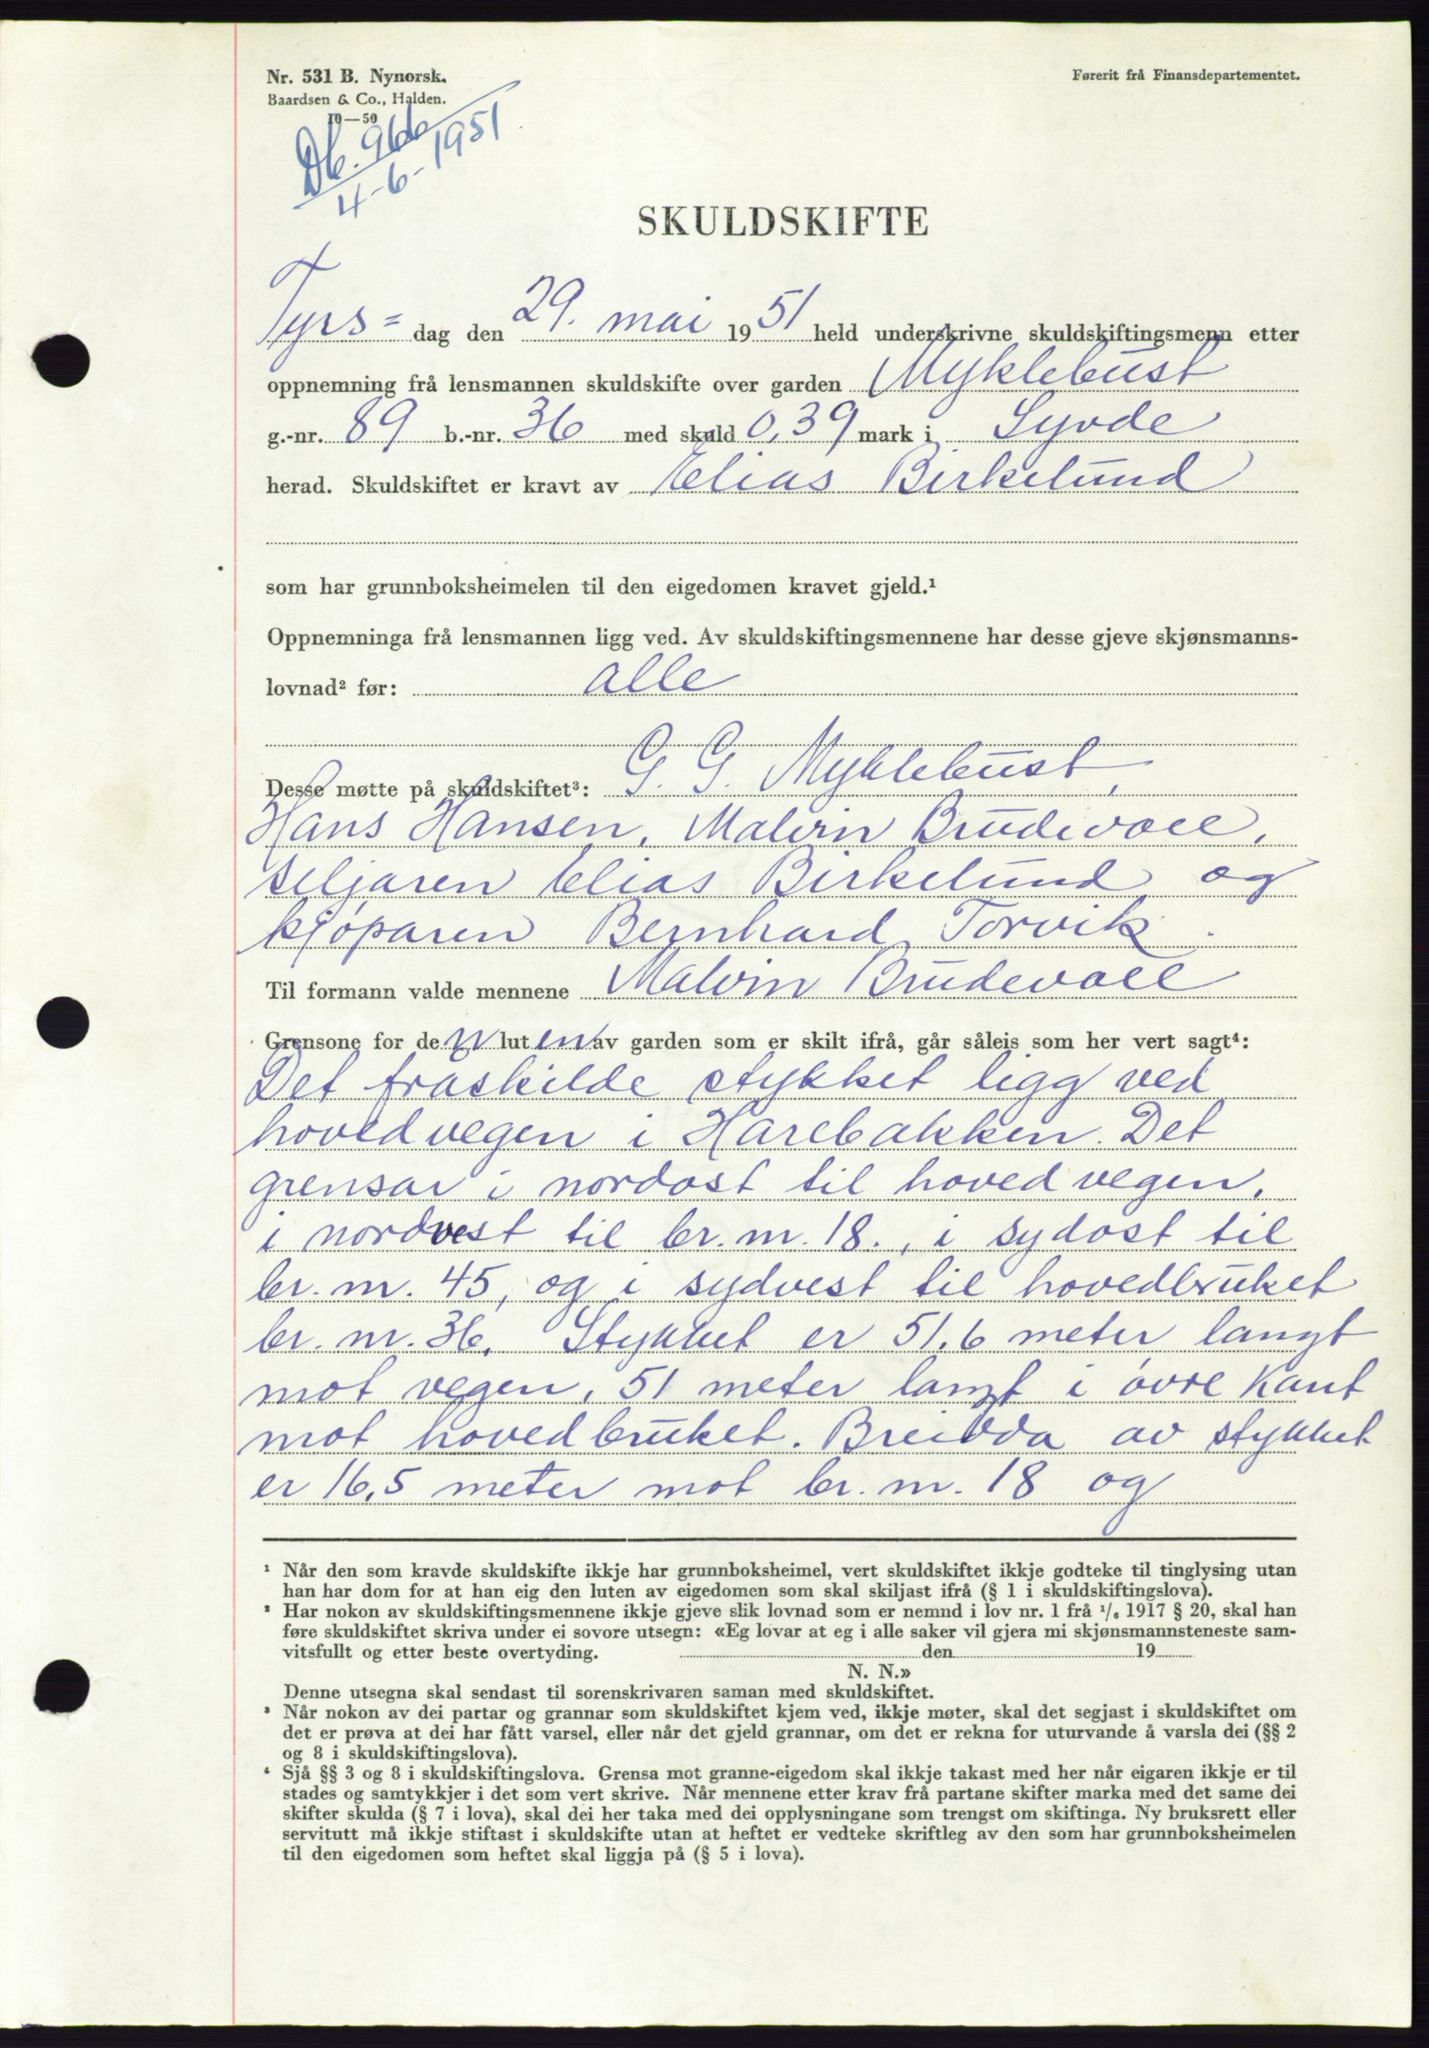 Nr. 531 B. Nynorsk.
Baardsen & Co., Halden.
10—50
Førerit frå Finansdepartementet.
Db. 966
4-6-1951.
SKULDSKIFTE
Tyrs= dag den 29. mai 1951 held underskrivne skuldskiftingsmenn etter
oppnemning frå lensmannen skuldskifte over garden Myklebust
g.-nr. 89 b.-nr. 36 med skuld 0,39 mark i Syvde
herad. Skuldskiftet er kravt av Elias Birkelund
som har grunnboksheimelen til den eigedomen kravet gjeld.¹
Oppnemninga frå lensmannen ligg ved. Av skuldskiftingsmennene har desse gjeve skjønsmanns-
lovnad² før: alle
Desse møtte på skuldskiftet³: G. G. Myklebust,
Hans Hansen, Malvin Brudevoll,
seljaren Elias Birkelund og
kjøparen Bernhard Torvik.
Til formann valde mennene Malvin Brudevoll
Grensone for den luten av garden som er skilt ifrå, går såleis som her vert sagt⁴:
Det fråskilde stykket ligg ved
hovedvegen i Harebakken. Det
grensar i nordost til hovedvegen,
i nordvest til br. nr. 18., i sydost til
br. nr. 45, og i sydvest til hovedbruket
br. nr. 36. Stykket er 51,6 meter langt
mot vegen, 51 meter langt i øvre kant
mot hovedbruket. Breidda av stykket
er 16,5 meter mot br. nr. 18 og
¹ Når den som kravde skuldskifte ikkje har grunnboksheimel, vert skuldskiftet ikkje godteke til tinglysing utan
han har dom for at han eig den luten av eigedomen som skal skiljast ifrå (§ 1 i skuldskiftingslova).
² Har nokon av skuldskiftingsmennene ikkje gjeve slik lovnad som er nemnd i lov nr. 1 frå ¹/₆ 1917 § 20, skal han
føre skuldskiftet skriva under ei sovore utsegn: «Eg lovar at eg i alle saker vil gjera mi skjønsmannsteneste sam-
vitsfullt og etter beste overtyding. den 19
N. N.»
Denne utsegna skal sendast til sorenskrivaren saman med skuldskiftet.
³ Når nokon av dei partar og grannar som skuldskiftet kjem ved, ikkje møter, skal det segjast i skuldskiftet om
det er prøva at dei har fått varsel, eller når det gjeld grannar, om det er rekna for uturvande å varsla dei (§§ 2
og 8 i skuldskiftingslova).
⁴ Sjå §§ 3 og 8 i skuldskiftingslova. Grensa mot granne-eigedom skal ikkje takast med her når eigaren ikkje er til
stades og samtykkjer i det som vert skrive. Når mennene etter krav frå partane skifter marka med det same dei
skifter skulda (§ 7 i lova), skal dei her taka med dei opplysningane som trengst om skiftinga. Ny bruksrett eller
servitutt må ikkje stiftast i skuldskifte utan at heftet er vedteke skriftleg av den som har grunnboksheimelen
til den eigedomen som heftet skal liggja på (§ 5 i lova).